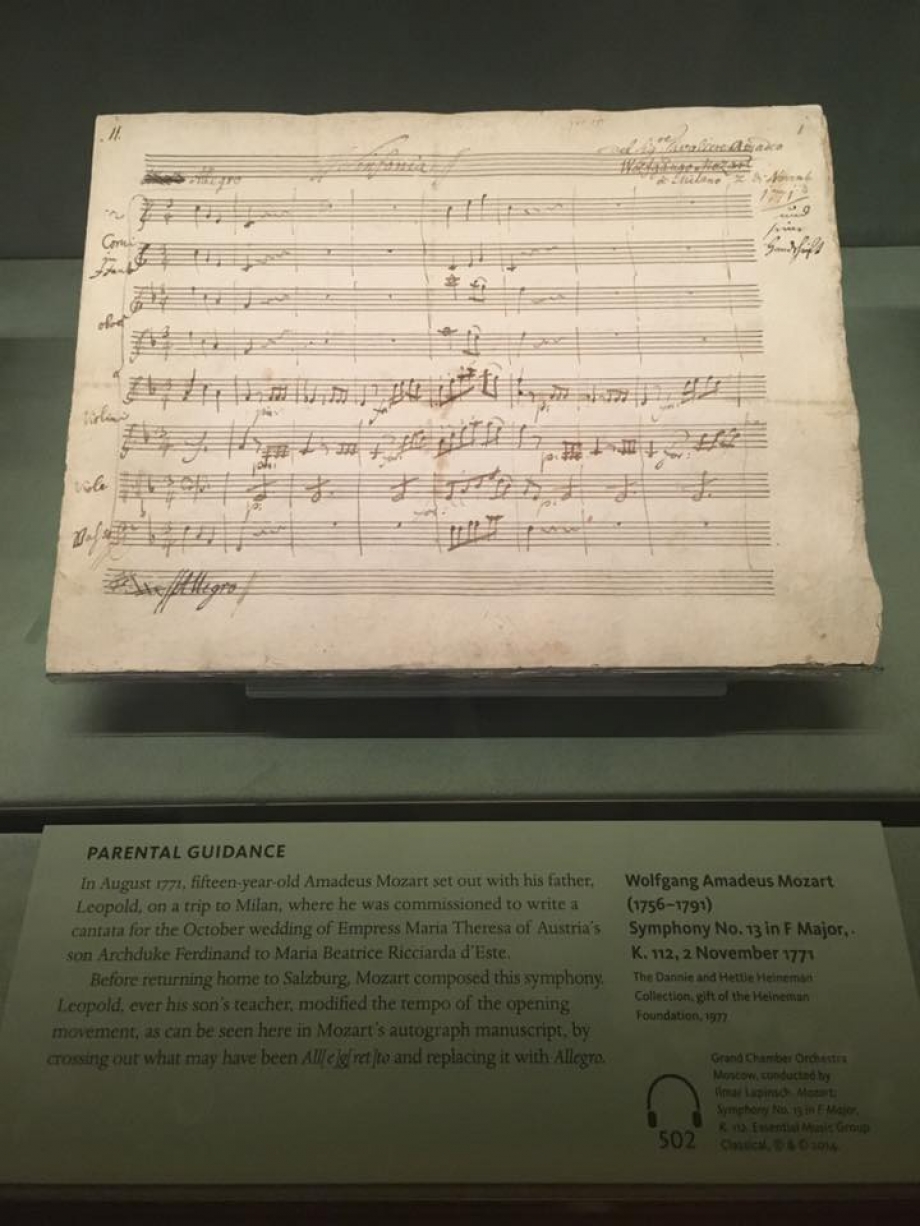 11.
1
Sinfonia
del Sgre Cavaliere Amadeo
Wolfgango Mozart
Allegro
à Milano 2 di Novemb
1771
und
seine
Handschrift
Corni
oboe
Violini
pia:
p:
Viole
p:
Allegro
PARENTAL GUIDANCE
In August 1771, fifteen-year-old Amadeus Mozart set out with his father,
Leopold, on a trip to Milan, where he was commissioned to write a
cantata for the October wedding of Empress Maria Theresa of Austria's
son Archduke Ferdinand to Maria Beatrice Ricciarda d'Este.
Before returning home to Salzburg, Mozart composed this symphony.
Leopold, ever his son's teacher, modified the tempo of the opening
movement, as can be seen here in Mozart's autograph manuscript, by
crossing out what may have been All[e]g[ret]to and replacing it with Allegro.
Wolfgang Amadeus Mozart
(1756–1791)
Symphony No. 13 in F Major,
K. 112, 2 November 1771
The Dannie and Hettie Heineman
Collection, gift of the Heineman
Foundation, 1977
502
Grand Chamber Orchestra
Moscow, conducted by
Ilmar Lapinsch. Mozart:
Symphony No. 13 in F Major,
K. 112. Essential Music Group
Classical, ℗ & © 2014.